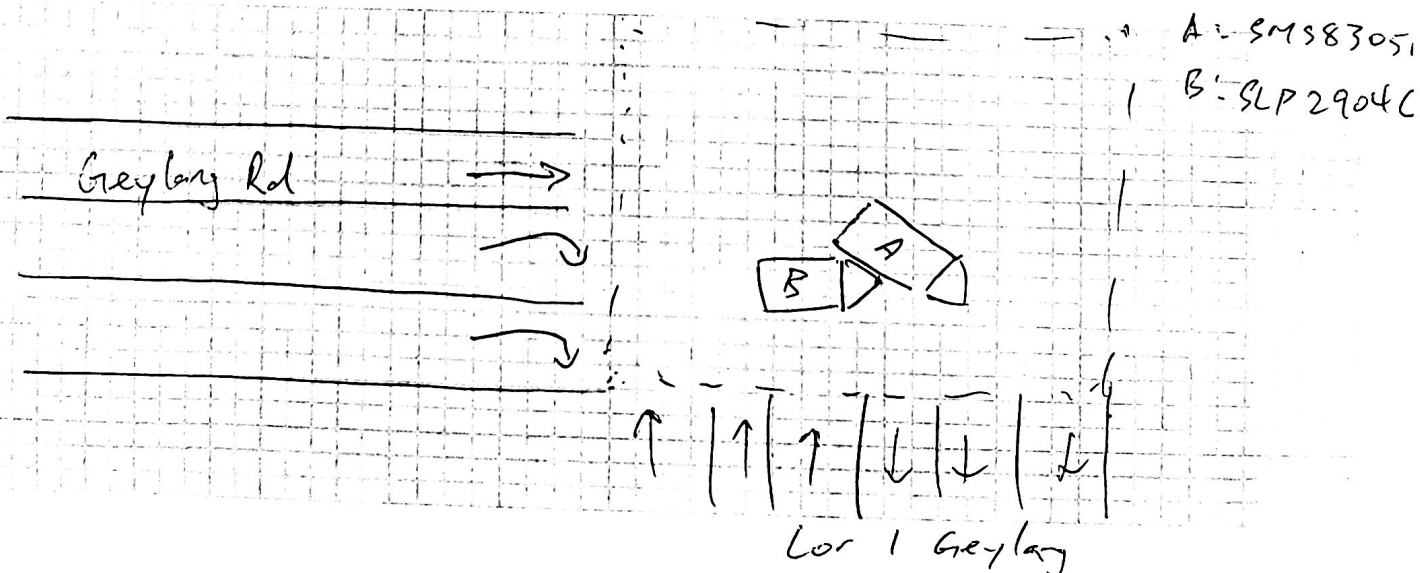 A:- SMS8305
B:- SLP2904C
Geylang Rd
A
B
Lor 1 Geylang